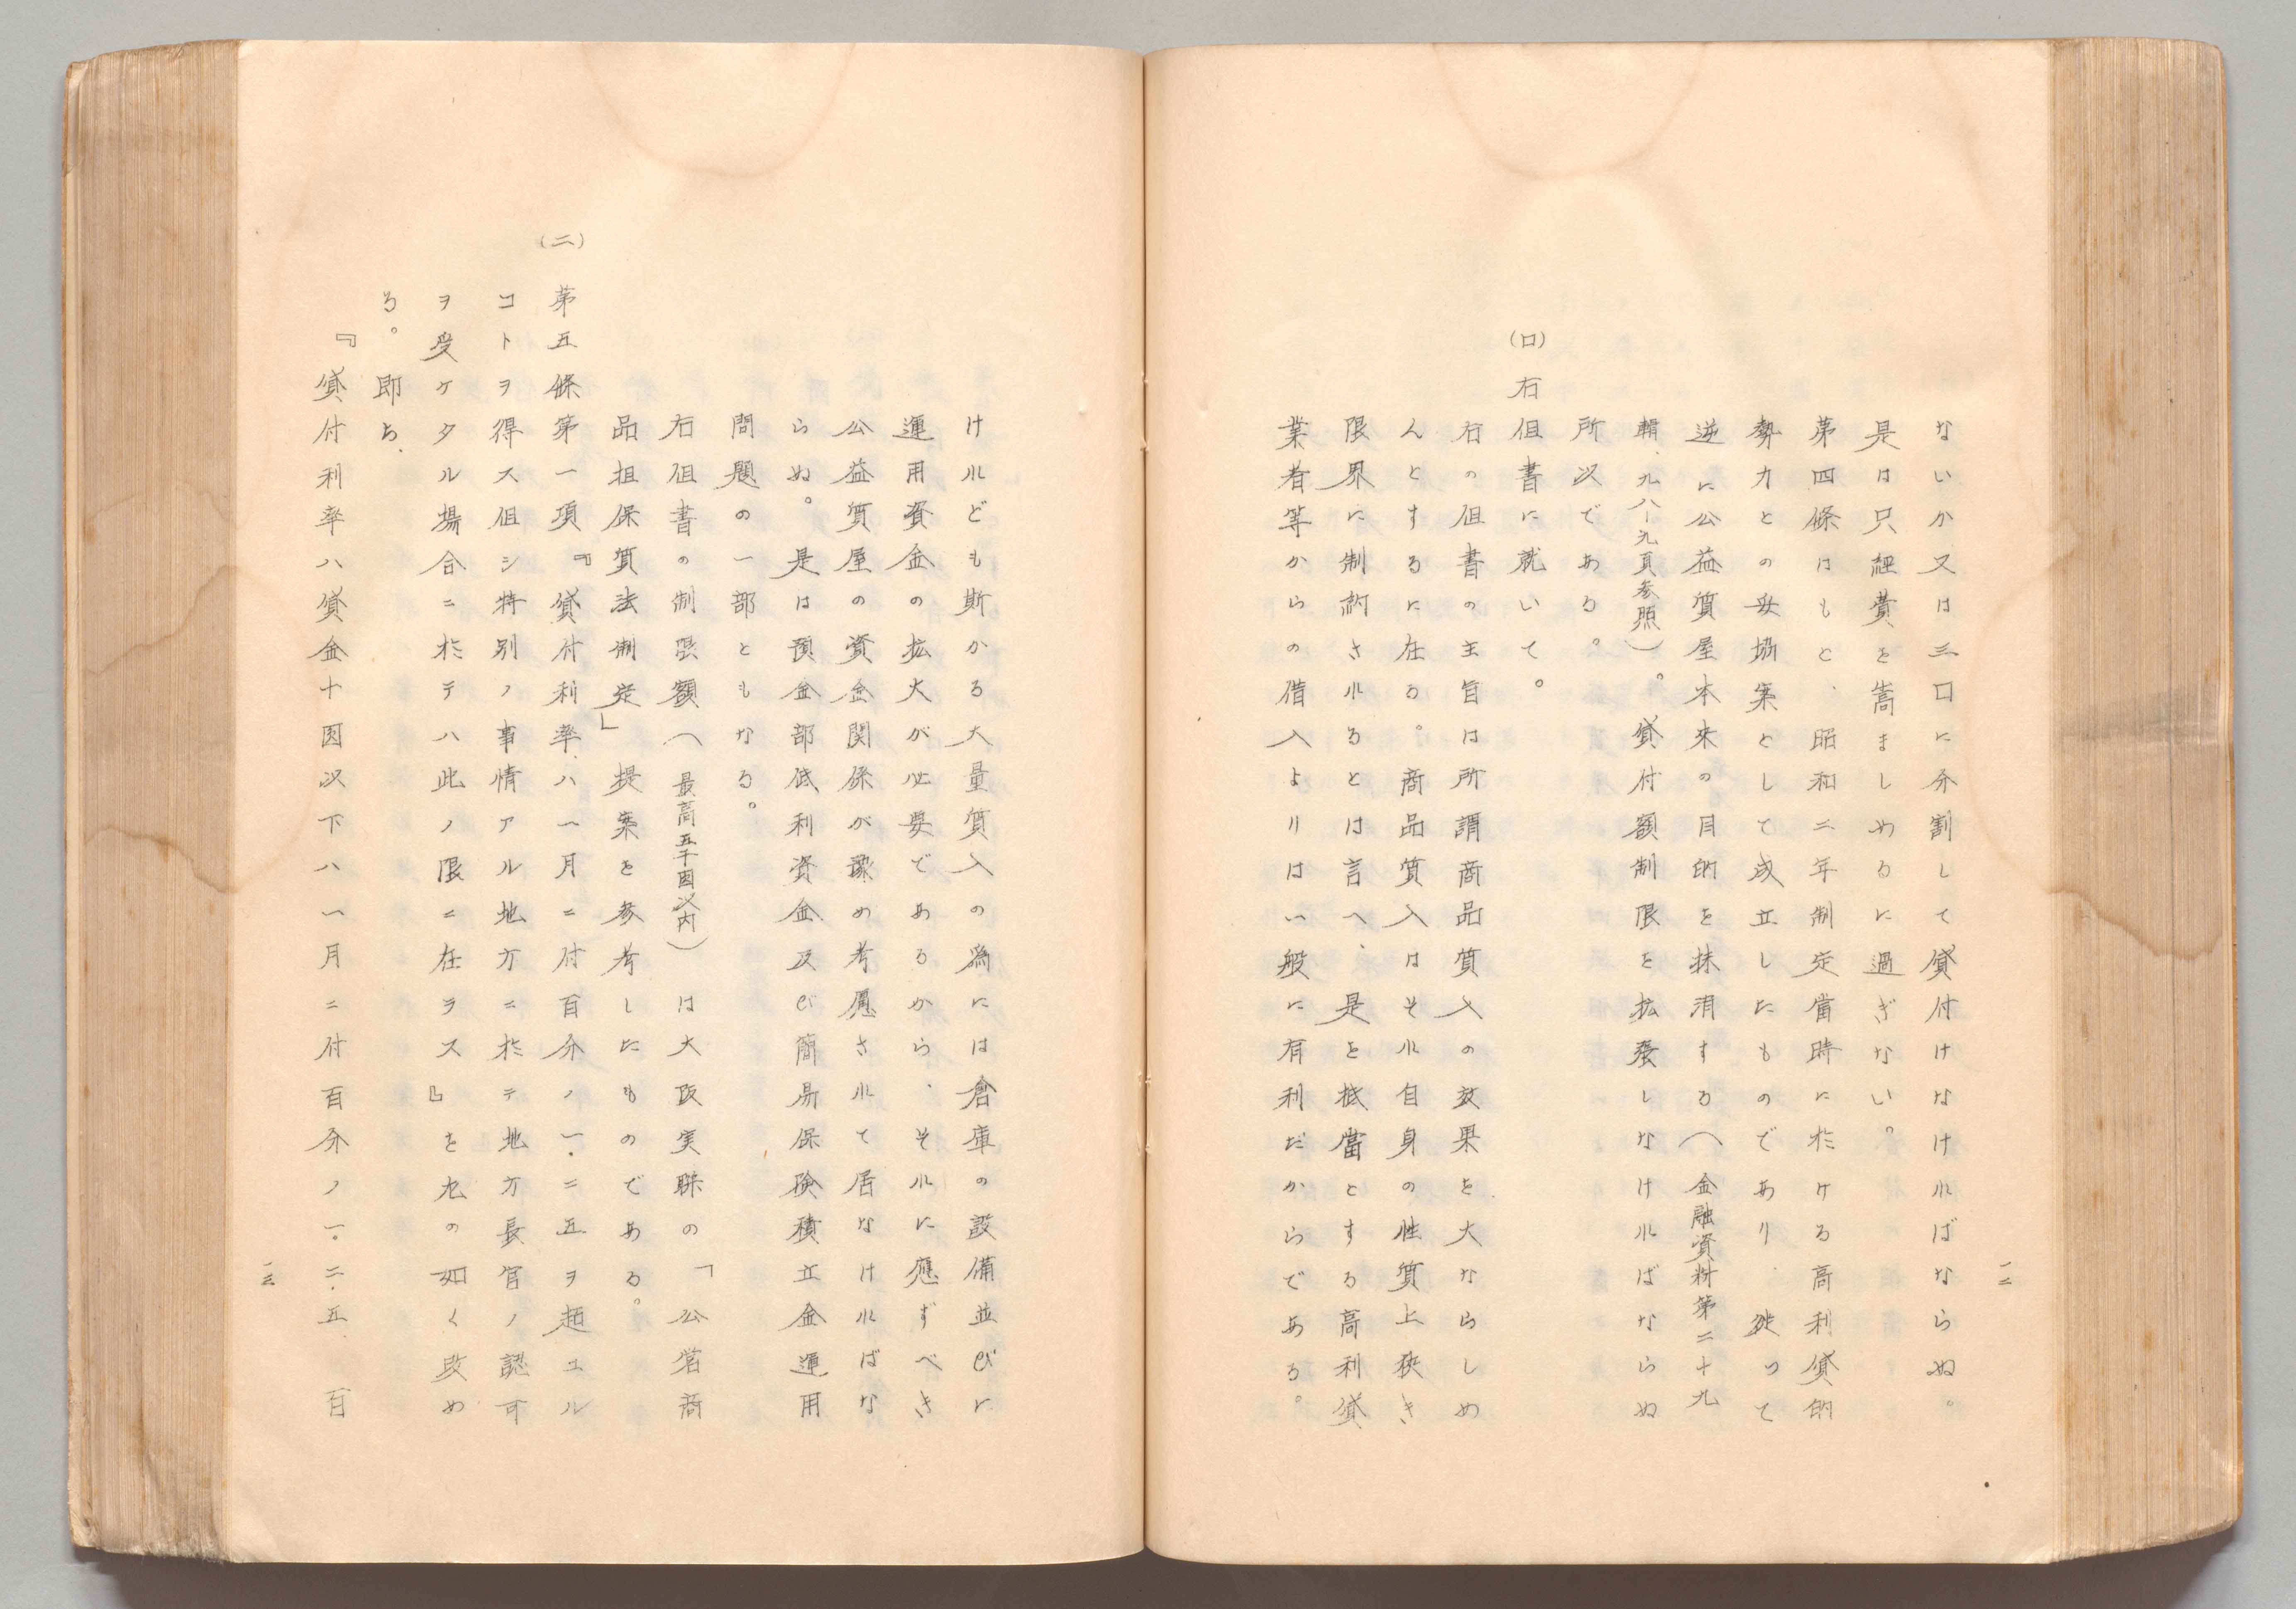 ないか又は三口に分割して貸付けなければならぬ。
是は只経費を嵩ましめるに過ぎない。
第四條はもと、昭和二年制定當時に於ける高利貸的
勢力との妥協案として成立したものであり、従つて
逆に公益質屋本来の目的を抹消する（金融資料第二十九
輯、九八―九頁参照）。貸付額制限を拡張しなければならぬ
所以である。
（ロ）右但書に就いて。
右の但書の主旨は所謂商品質入の效果を大ならしめ
んとするに在る。商品質入はそれ自身の性質上狭き
限界に制約されるとは言へ、是を抵當とする高利貸
業者等からの借入よりは一般に有利だからである。
一二
けれども斯かる大量質入の為には倉庫の設備並びに
運用資金の拡大が必要であるから、それに應ずべき
公益質屋の資金関係が豫め考慮されて居なければな
らぬ。是は預金部低利資金及び簡易保険積立金運用
問題の一部ともなる。
右但書の制限額（最高五千圓以内）は大阪実聯の「公営商
品担保質法制定」提案を参考したものである。
（二）第五條第一項『貸付利率ハ一月ニ付百分ノ一・二五ヲ超エル
コトヲ得ス但シ特別ノ事情アル地方ニ於テ地方長官ノ認可
ヲ受ケタル場合ニ於テハ此ノ限ニ在ラス』を左の如く改め
る。即ち、
『貸付利率ハ貸金十圓以下ハ一月ニ付百分ノ一・二・五、百
一三